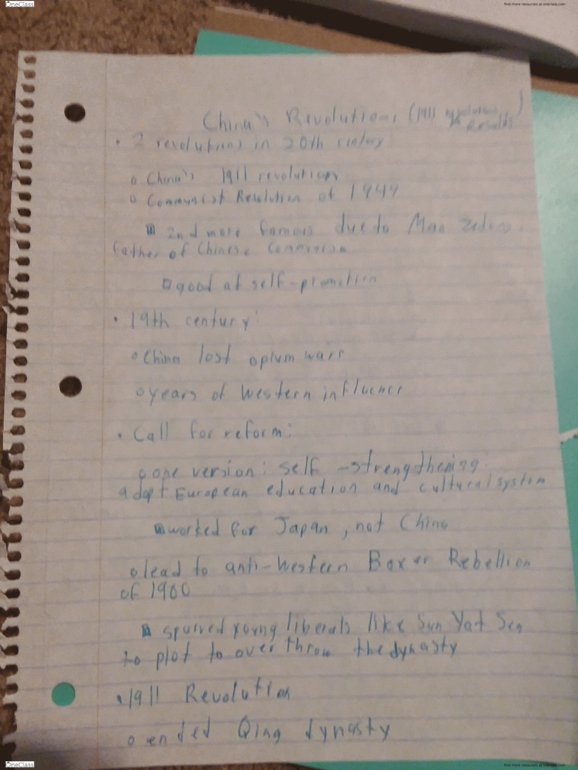 OneClass
find more resources at oneclass.com
China's Revolutions (1911 revolution
Results)
• 2 revolutions in 20th century
o China's 1911 revolution
o Communist Revolution of 1949
2nd more famous due to Mao Zedong
father of Chinese Communism
good at self-promotion
• 19th century:
o China lost opium wars
o years of Western influence
• Call for reform:
o one version: self-strengthening:
adopt European education and cultural system
worked for Japan, not China
o lead to anti-Western Boxer Rebellion
of 1900
spurred young liberals like Sun Yat Sen
to plot to over throw the dynasty
• 1911 Revolution
o ended Qing dynasty
OneClass
find more resources at oneclass.com